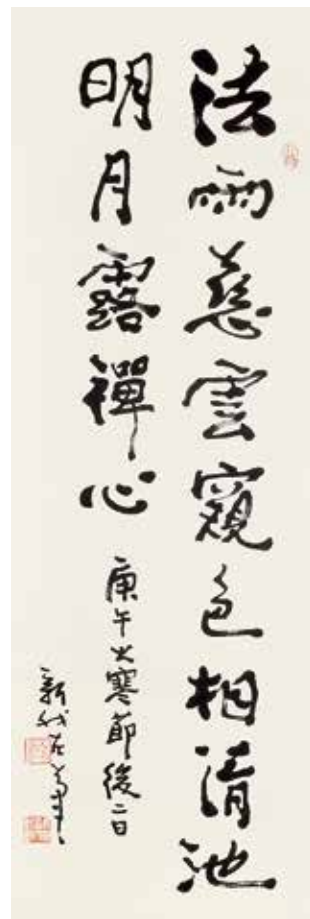 法雨慈雲窺色相清池
明月露禪心
庚午大寒節後二日
新我左筆